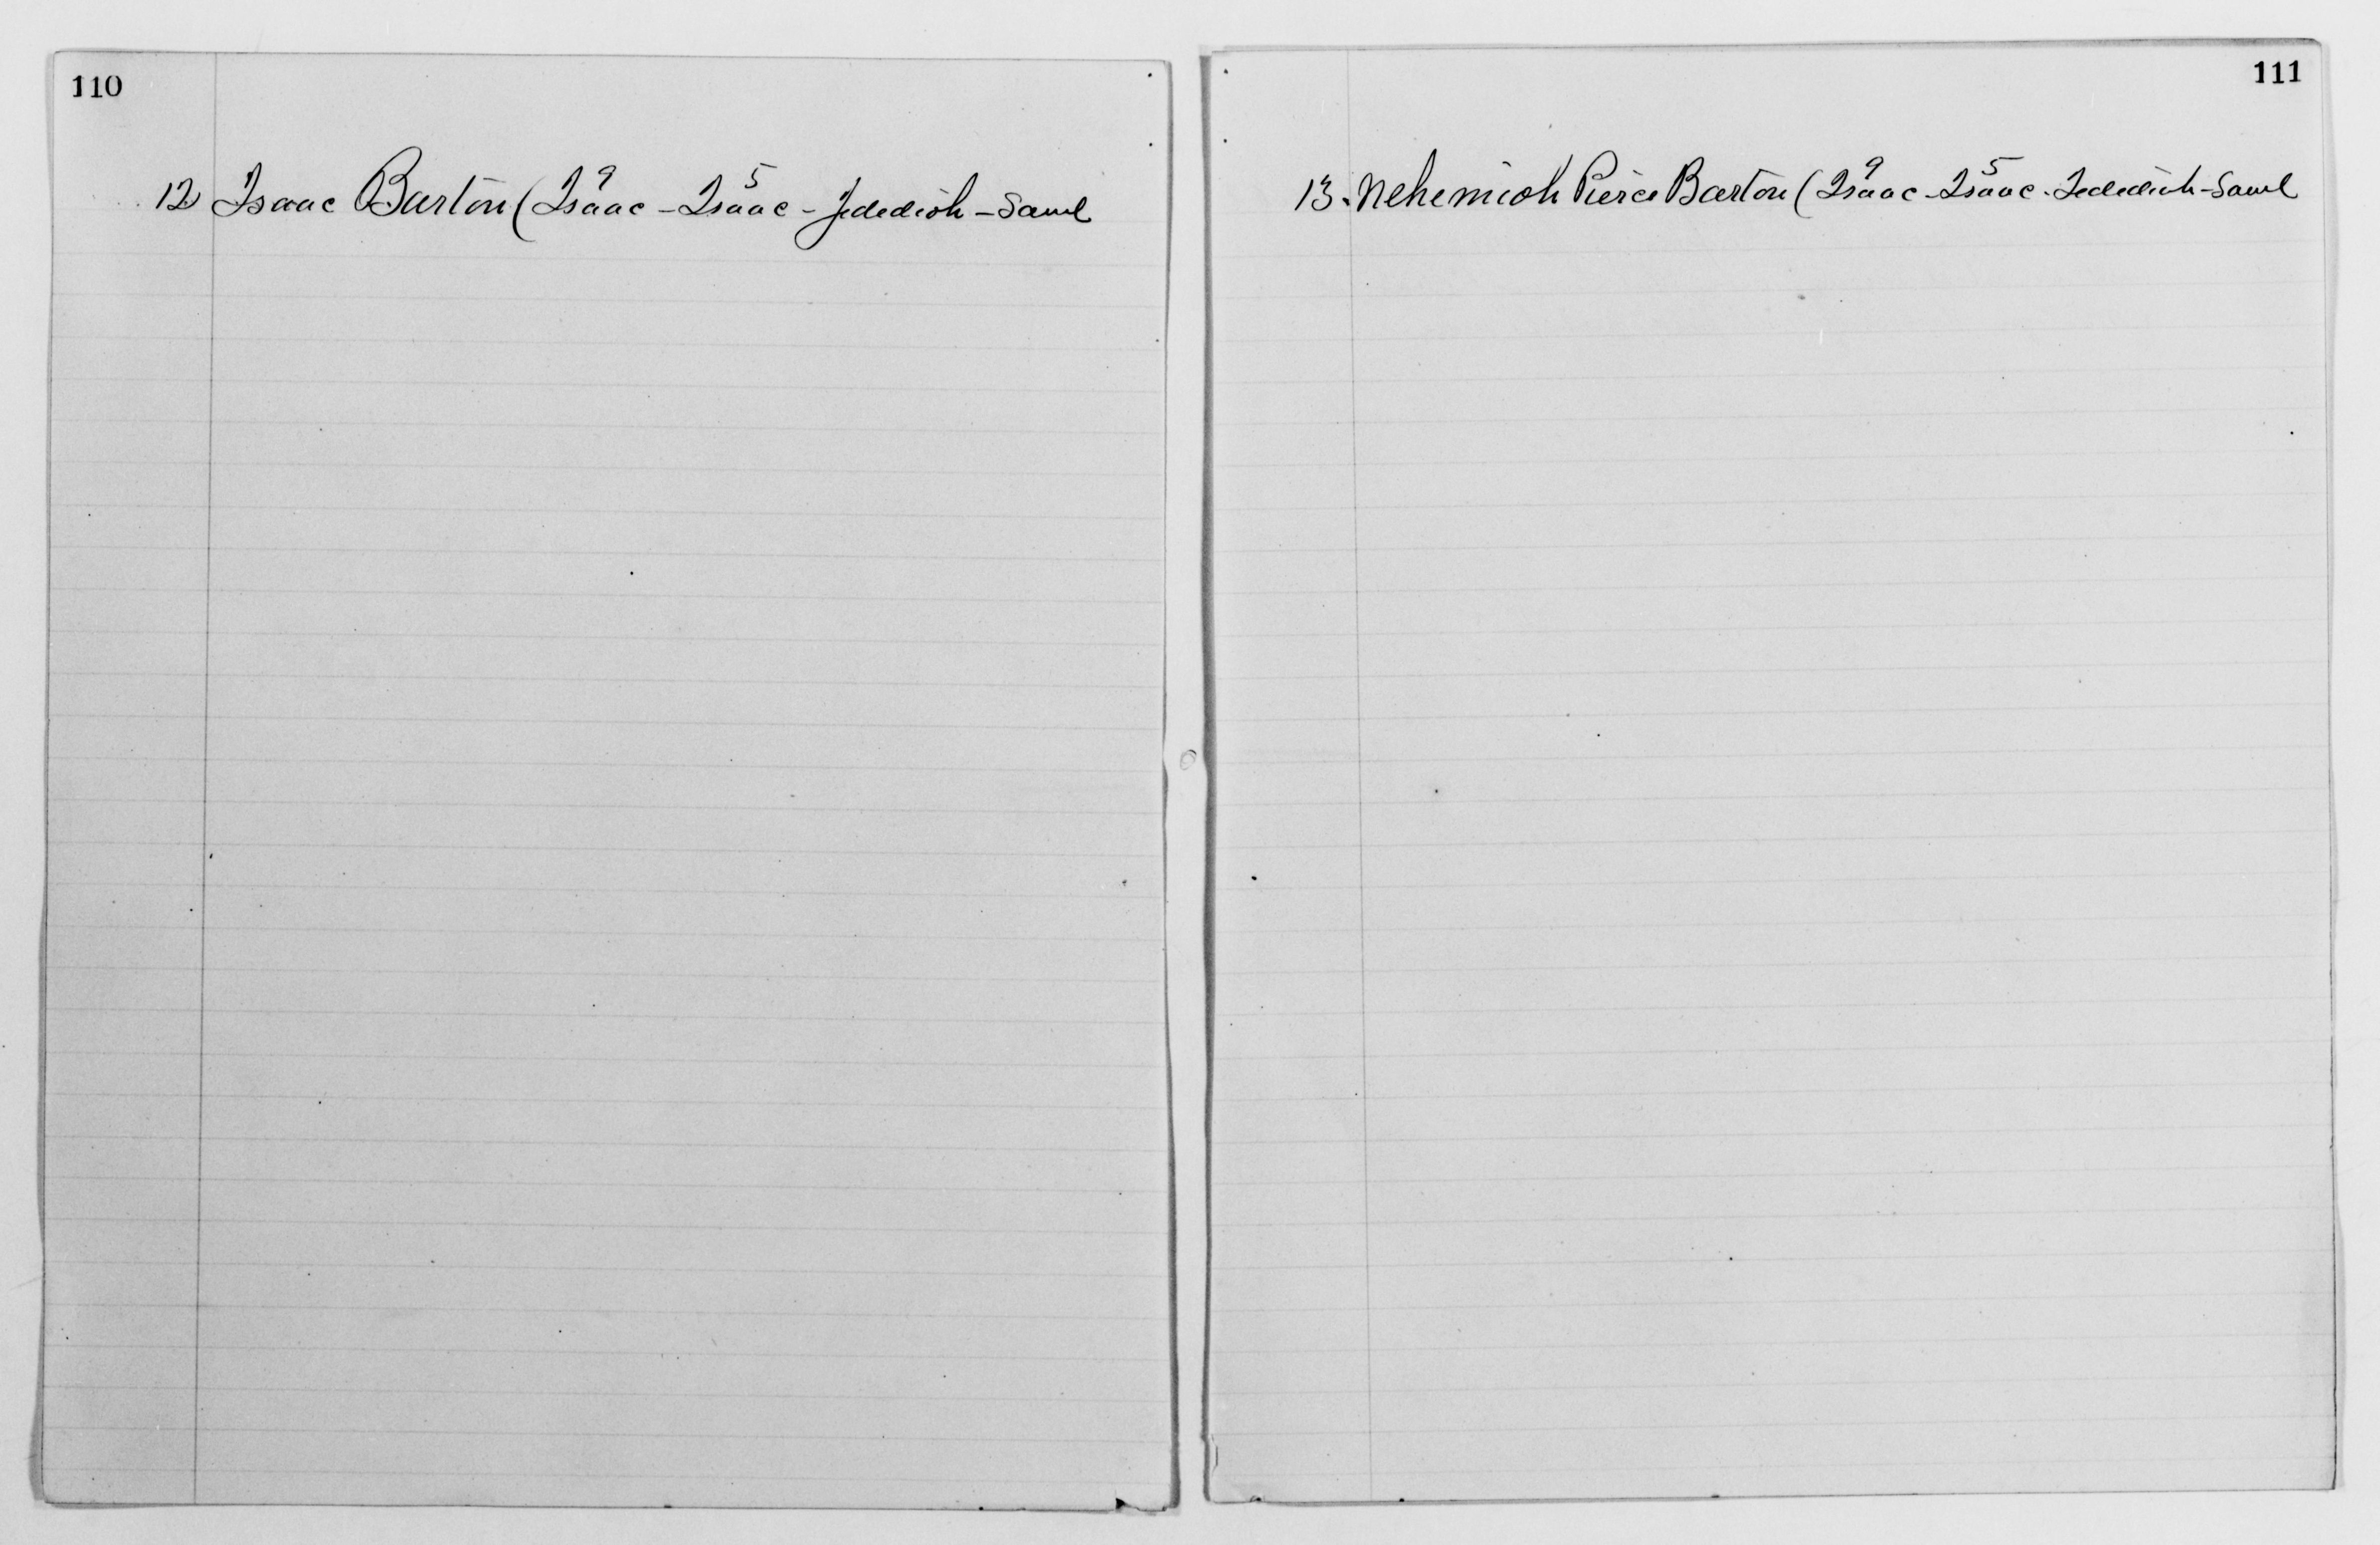 110
12 Isaac Barton (Isaac⁹ - Isaac⁵ - Jedediah - Saml
111
13. Nehemiah Pierce Barton (Isaac⁹ - Isaac⁵ - Jedediah - Saml